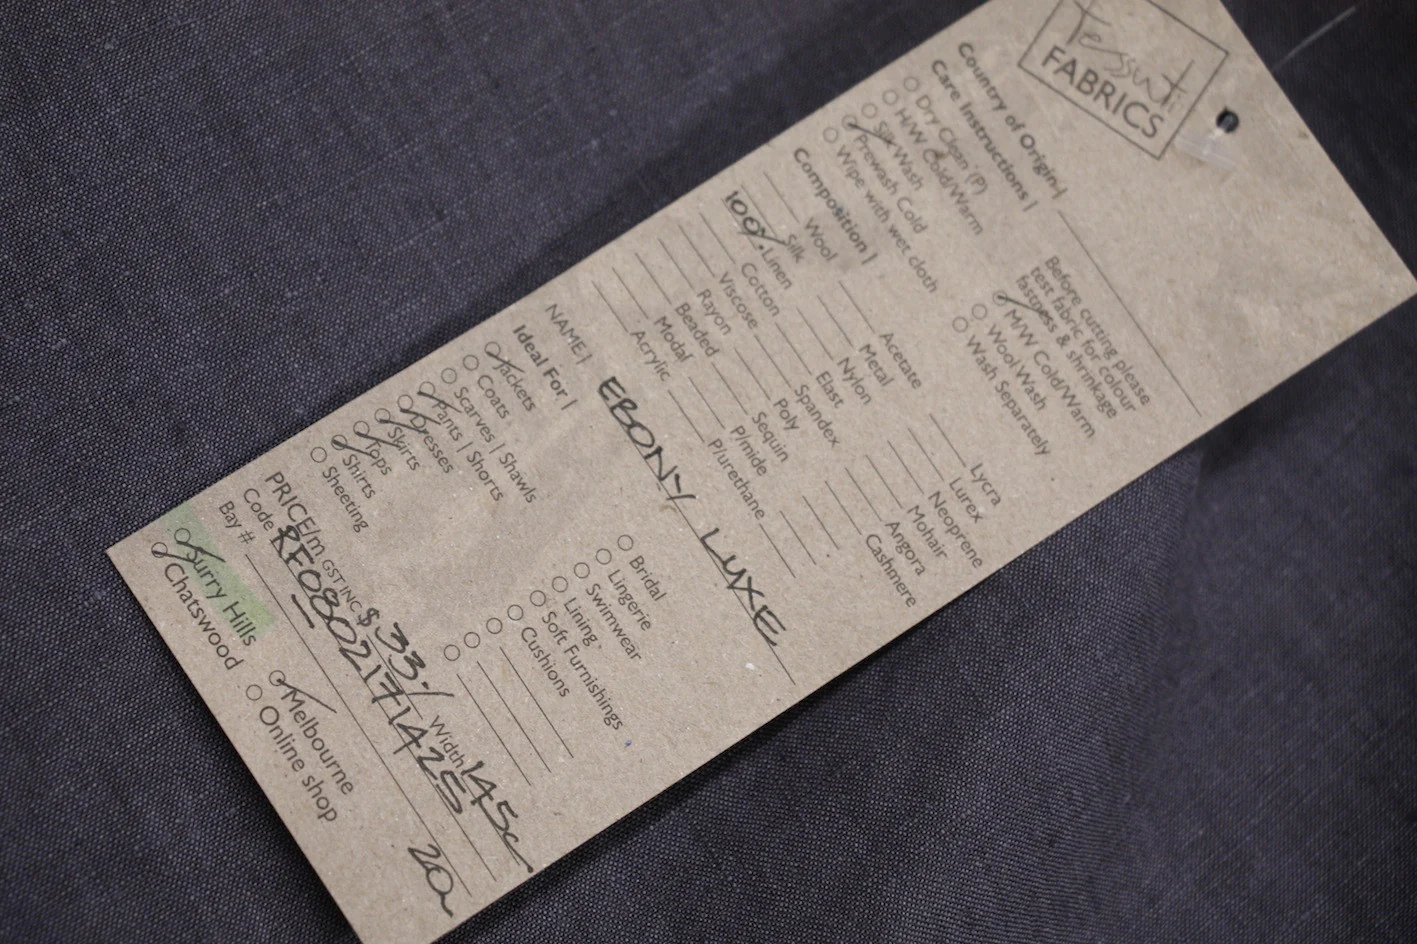 Tessuti
FABRICS
Country of Origin |
Care Instructions |
Dry Clean (P)
H/W Cold/Warm
Silk Wash
Prewash Cold
Wipe with wet cloth
Before cutting please
test fabric for colour
fastness & shrinkage
M/W Cold/Warm
Wool Wash
Wash Separately
Composition |
Wool
Silk
100% Linen
Cotton
Viscose
Rayon
Beaded
Modal
Acrylic
Acetate
Metal
Nylon
Elast
Spandex
Poly
Sequin
P/mide
P/urethane
Lycra
Lurex
Neoprene
Mohair
Angora
Cashmere
NAME | EBONY LUXE
Ideal For |
Jackets
Coats
Scarves | Shawls
Pants | Shorts
Dresses
Skirts
Tops
Shirts
Sheeting
Bridal
Lingerie
Swimwear
Lining
Soft Furnishings
Cushions
PRICE/m GST INC $33/ Width 145c
Code RF0802171425
Bay # 20a
Surry Hills
Chatswood
Melbourne
Online shop